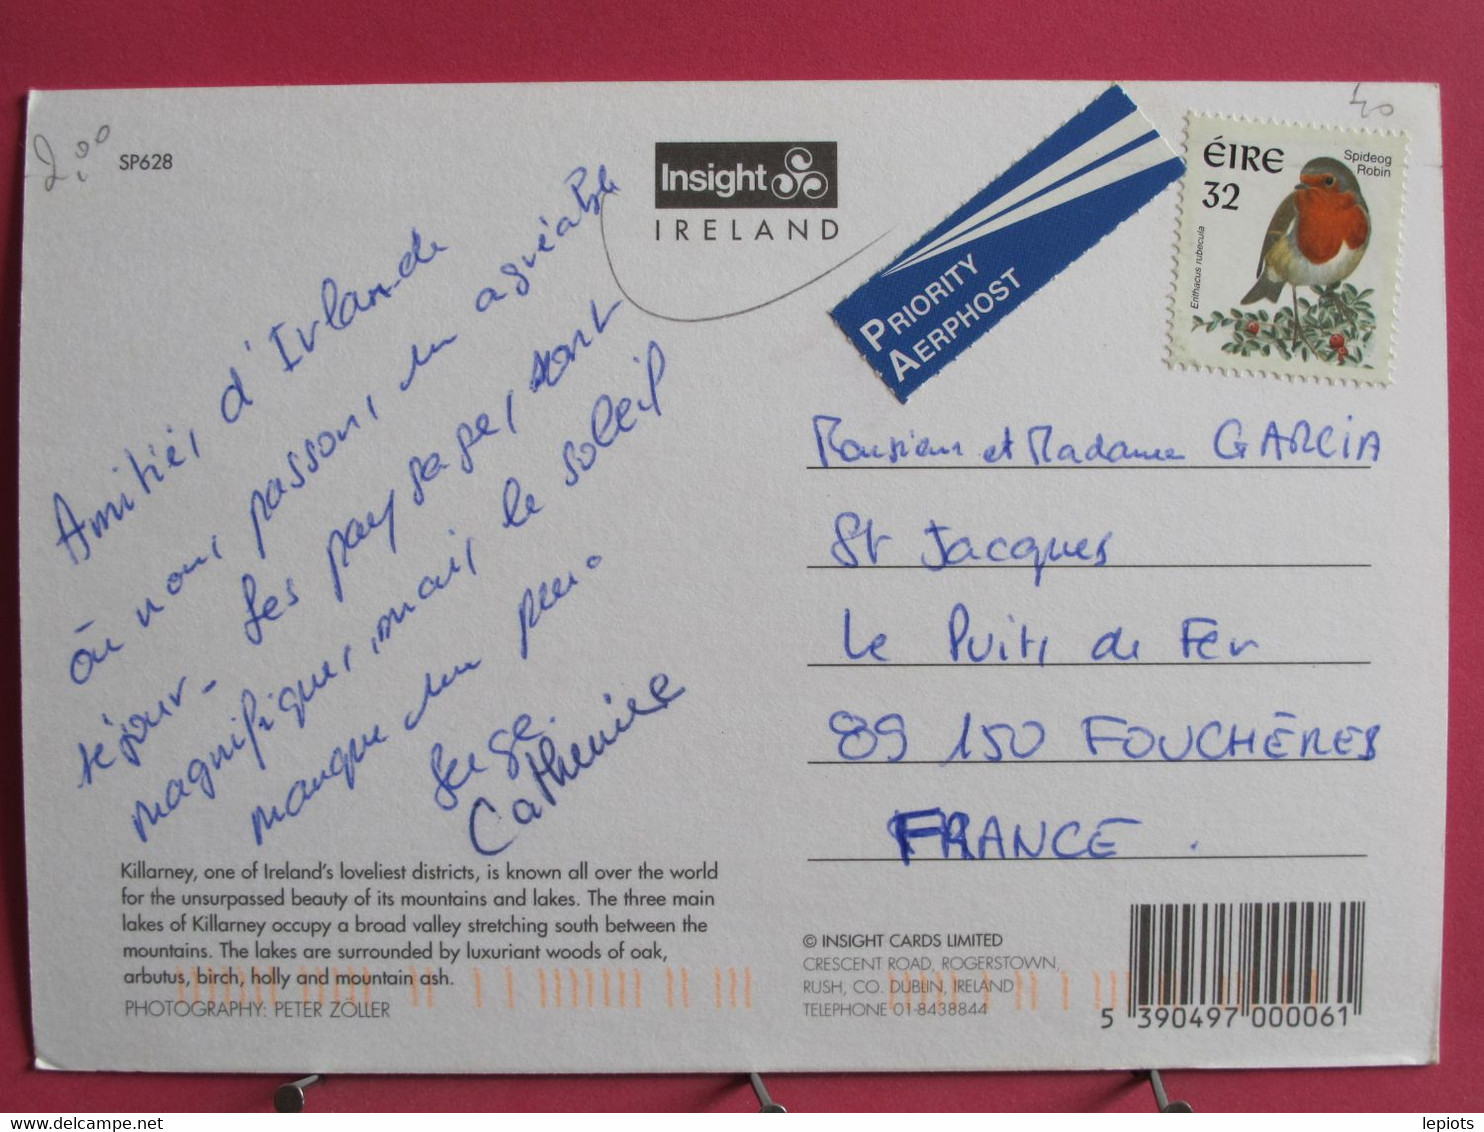 2,00
SP628
Insight
IRELAND
PRIORITY
AERPHOST
40
ÉIRE
32
Spideog
Robin
Erithacus rubecula
Amitiés d'Irlande
où nous passons un agréable
séjour - Les paysages sont
magnifiques, mais le soleil
manque un peu.
Serge.
Catherine
Monsieur et Madame GARCIA
St Jacques
Le Puits de Fer
89 150 FOUCHÈRES
FRANCE.
Killarney, one of Ireland's loveliest districts, is known all over the world
for the unsurpassed beauty of its mountains and lakes. The three main
lakes of Killarney occupy a broad valley stretching south between the
mountains. The lakes are surrounded by luxuriant woods of oak,
arbutus, birch, holly and mountain ash.
PHOTOGRAPHY: PETER ZÖLLER
© INSIGHT CARDS LIMITED
CRESCENT ROAD, ROGERSTOWN,
RUSH, CO. DUBLIN, IRELAND
TELEPHONE 01-8438844
5 390497 000061
lepiots